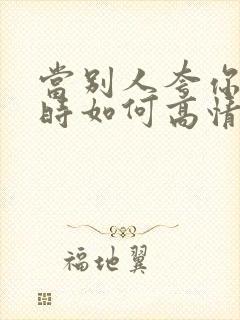 當別人夸你
時如何高情
福地翼